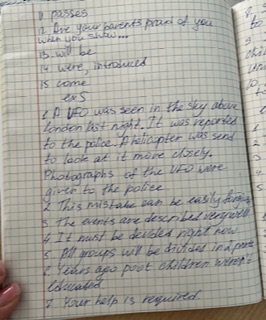 11 passes
12 Are your parents proud of you
when you show...
13 will be
14 were, introduced
15 come
ex5
1 A UFO was seen in the sky above
London last night. It was reported
to the police. A helicopter was send
to look at it more closely.
Photographs of the UFO were
given to the police
2 This mistake can be easily
3 The events are described very
4 It must be decided right now
5 All groups will be divided in 2 parts
6 Years ago poor children weren't
educated
7 Your help is required.